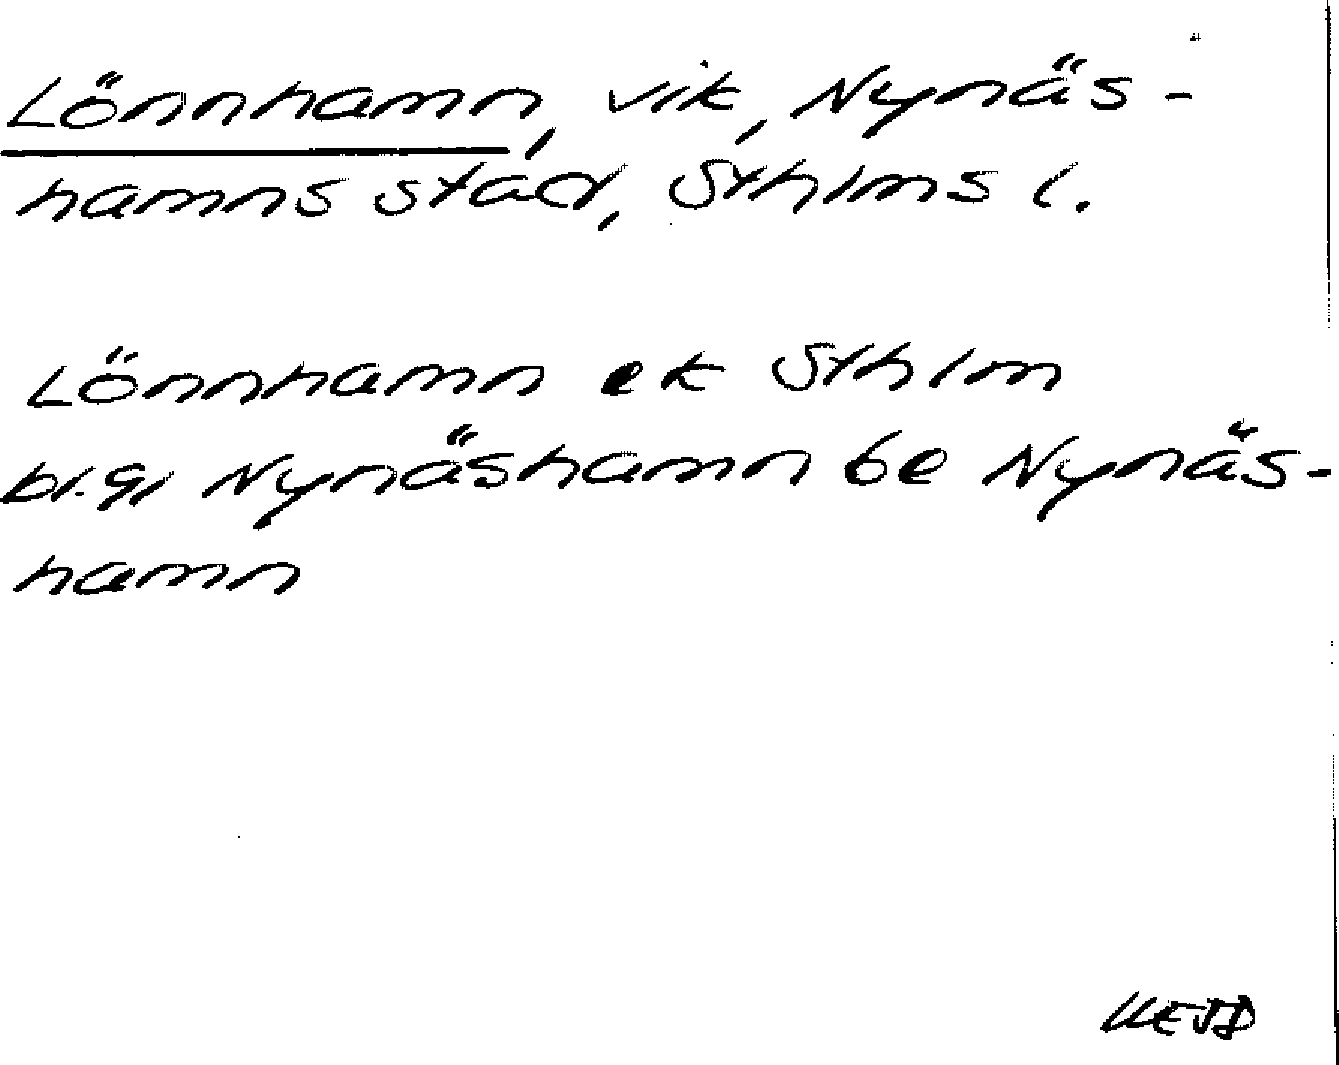 Lönnhamn, vik, Nynäs-
hamns stad, Sthlms l.
Lönnhamn ek Sthlm
bl.g, Nynäshamn be Nynäs-
hamn